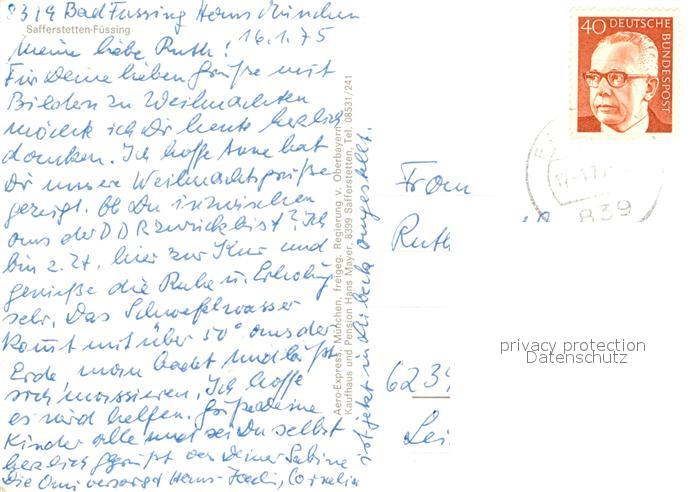 8399 Bad Füssing Haus München
Safferstetten-Füssing
16.1.75
Meine liebe Ruth!
Für Deine lieben Grüße mit
Bildern zu Weihnachten
möchte ich Dir heute herzlich
danken. Ich hoffe Anne hat
Dir unsere Weihnachtsgrüße
gezeigt. Ob Du inzwischen
aus der DDR zurück bist? Ich
bin z. Zt. hier zur Kur und
genieße die Ruhe u. Erholung
sehr. Das Schwefelwasser
kommt mit über 50° aus der
Erde, man badet und läßt
sich massieren. Ich hoffe
es wird helfen. Grüße Deine
Kinder alle und sei Du selbst
herzlich gegrüßt von Deiner Sabine
Die Omi versorgt Hans-Joach., Cornelia
ist jetzt in angestellt.
Aero-Express, München, freigeg. Regierung v. Oberbayern
Kaufhaus und Pension Hans Mayer, 8399 Safferstetten, Tel. 08531/241
40 DEUTSCHE
BUNDESPOST
17.-1.7
839
Frau
Ruth
privacy protection
Datenschutz
623
Lei